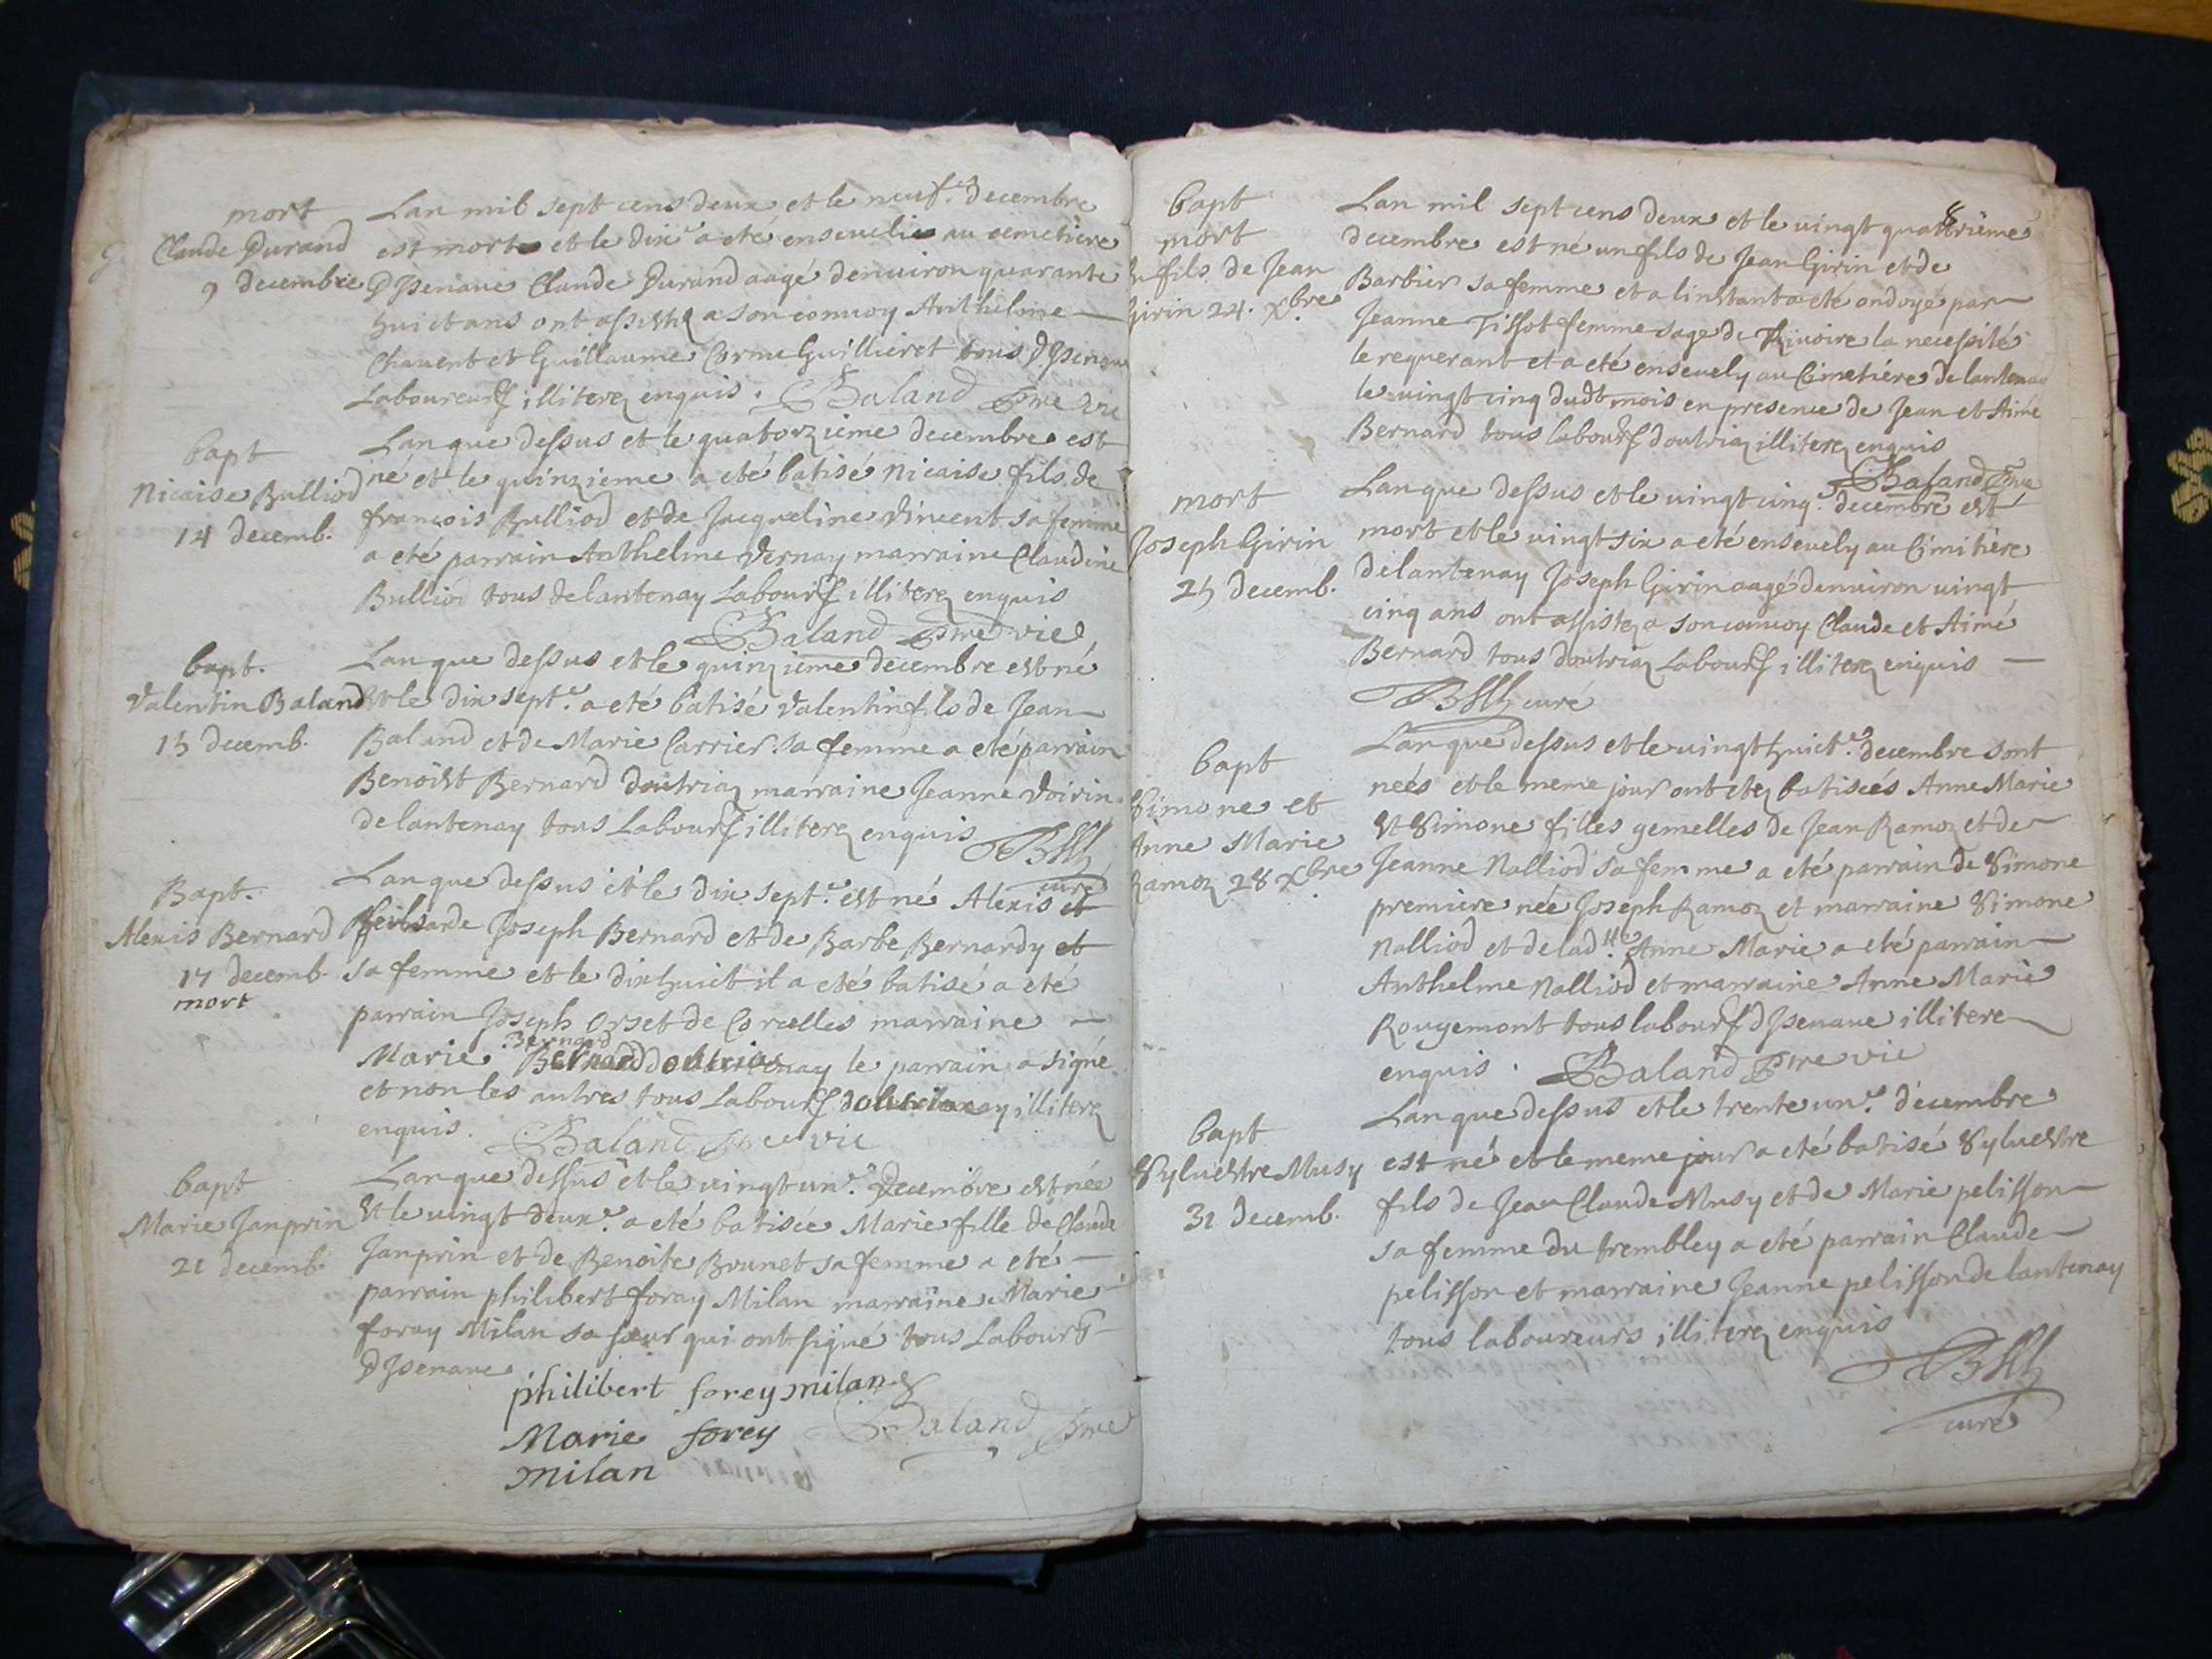 mort
Claude Durand
9 decembre
Lan mil sept cens deux et le neuf.e decembre
est mort et le dix.e a eté enseveli au cemetiere
D Jsenave Claude Durand aagé denuiron quarante
huict ans ont assistez a son convoy Anthelme
Chavent et Guillaume Cornu Guillieret tous d Jsenave
Laboureurs illiterez enquis. Baland Ptre vic
bapt
Nicaise Bulliod
14 decemb.
Lan que dessus et le quatorzieme decembre est
né et le quinzieme a eté batisé Nicaise fils de
françois Bulliod et de Jacqueline Vincent sa femme
a eté parrain Anthelme Vernay marraine Claudine
Bulliod tous de lantenay Labours illiterez enquis
Baland Ptre vic
bapt.
Valentin Baland
15 decemb.
Lan que dessus et le quinzieme decembre est né
et le dix sept.e a eté batisé Valentin fils de Jean
Baland et de Marie Carrier sa femme a eté parrain
Benoist Bernard doutriaz marraine Jeanne Voirin
de lantenay tous Labours illiterez enquis
curé
Bapt.
Alexis Bernard
17 decemb.
mort
Lan que dessus et le dix sept.e est né Alexis et
fils de Joseph Bernard et de Barbe Bernardy et
sa femme et le dix huict il a eté batisé a eté
parrain Joseph Orset de Corcelles marraine
Bernard
Marie Bernard doutriaz le parrain a signé
et non les autres tous Labours doutriaz illiterez
enquis. Baland Ptre vic
bapt
Marie Janprin
21 decemb.
Lan que dessus et le vingt un.e Decembre est née
et le vingt deux.e a eté batisée Marie fille de Claude
Janprin et de Benoite Brunet sa femme a eté
parrain philibert foray Milan marraine Marie
foray Milan sa soeur qui ont signé tous Labours
D Jsenave
philibert forey milan
Marie forey
milan
Baland Ptre
8
bapt
mort
un fils de Jean
Girin 24. Xbre
Lan mil sept cens deux et le vingt quattrieme
decembre est né un fils de Jean Girin et de
Barbier sa femme et a linstant a eté ondoyé par
Jeanne Tissot femme sage de Rivoire la necessité
le requerant et a eté ensevely au Cimetiére de lantenay
le vingt cinq dudt mois en presence de Jean et Aimé
Bernard tous labours doutriaz illiterez enquis
Baland Ptre
mort
Joseph Girin
25 decemb.
Lan que dessus et le vingt cinq.e decembre est
mort et le vingt six a eté ensevely au Cimitière
de lantenay Joseph Girin aagé denuiron vingt
cinq ans ont assistez a son convoy Claude et Aimé
Bernard tous doutriaz Labours illiterez enquis
curé
bapt
Simone et
Anne Marie
Ramoz 28 Xbre
Lan que dessus et le vingt huict.e decembre sont
neés et le meme jour ont etez batiseés Anne Marie
et Simone filles gemelles de Jean Ramoz et de
Jeanne Nalliod sa femme a eté parrain de Simone
premiere née Joseph Ramoz et marraine Simone
Nalliod et de lad.tte Anne Marie a eté parrain
Anthelme Nalliod et marraine Anne Marie
Rougemont tous labours d Jsenave illitere
enquis. Baland Ptre vic
bapt
Sylvestre Musy
31 decemb.
Lan que dessus et le trente un.e decembre
est né et le meme jour a eté batisé Sylvestre
fils de Jean Claude Musy et de Marie pelisson
sa femme du trembley a eté parrain Claude
pelisson et marraine Jeanne pelisson de lantenay
tous laboureurs illiterez enquis
curé